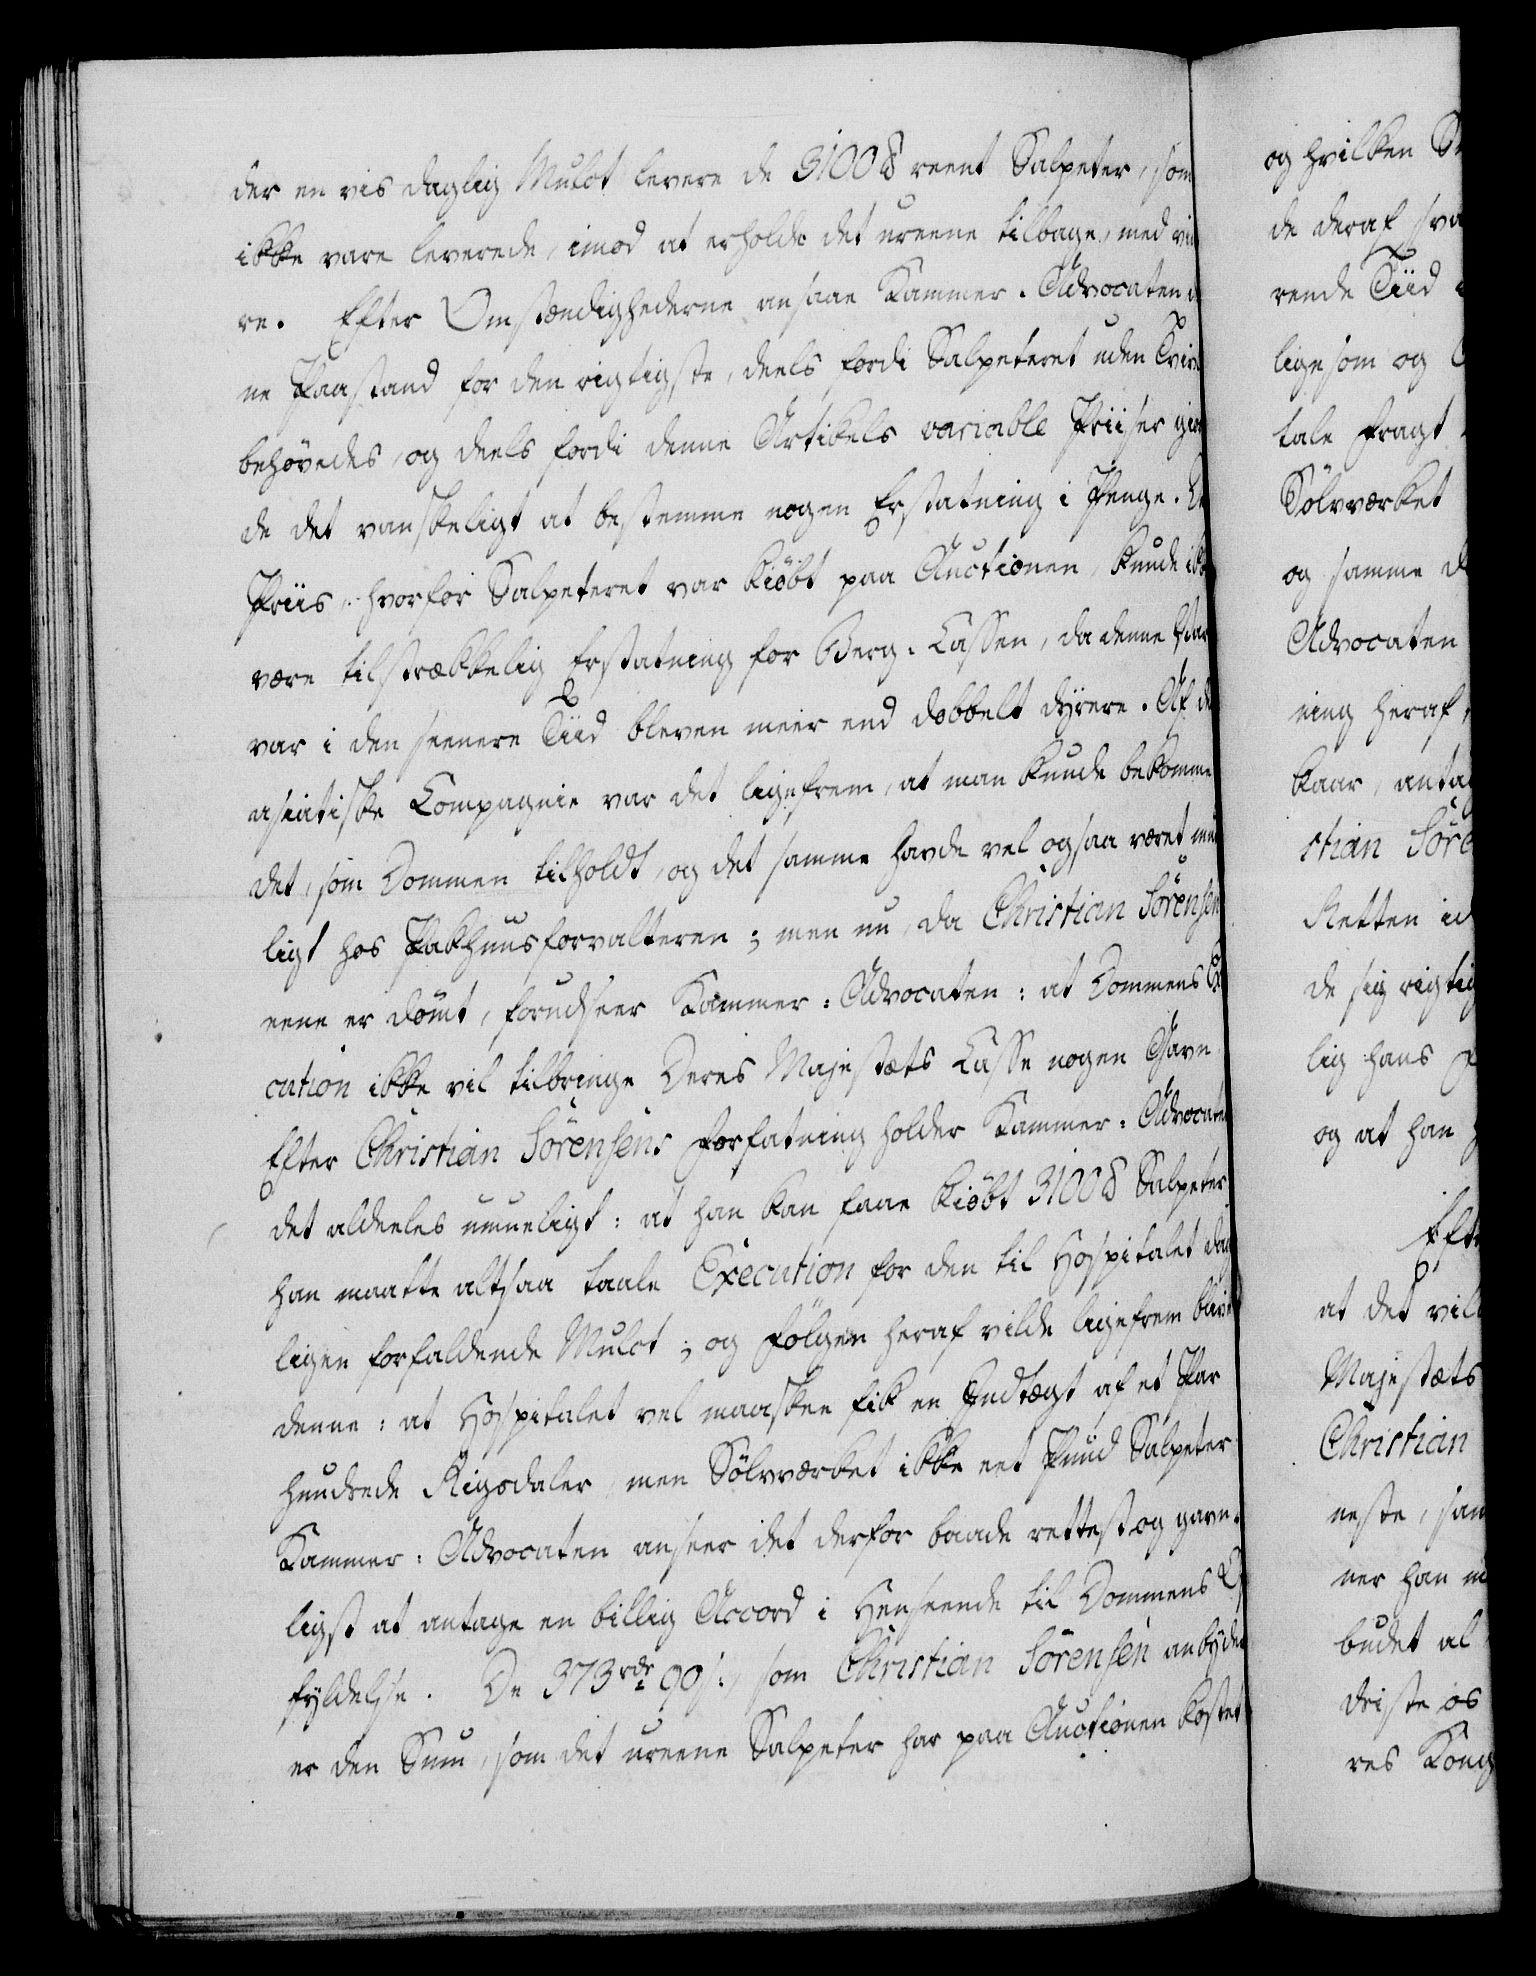 der en vis daglig Mulct levere de 3100 ℔ reent Salpeter, som
ikke vare leverede, imod at erholde det ureene tilbage, med vi
re. Efter Omstændighederne ansaae Kammer-Advocaten
ne Paastand for den rigtigste, deels fordi Salpeteret uden Tviv
behøvedes, og deels fordi denne Artikels variable Priiser gior
de det vanskeligt at bestemme nogen Erstatning i Penge.
Priis, hvorfor Salpeteret var kiøbt paa Auctionen, kunde ikk
være tilstrækkelig Erstatning for Berg-Cassen, da denne Var
var i den seenere Tiid bleven meer end dobbelt dyrere. Af de
asiatiske Compagnie var det ligefrem, at man kunde bekomme
det, som Dommen tilholdt, og det samme havde vel ogsaa været mue
ligt hos Pakhuusforvalteren; men nu, da Christian Sørensen
eene er dømt, forudseer Kammer-Advocaten: at Dommens Exe
cution ikke vil tilbringe Deres Majestæts Casse nogen Gavn
Efter Christian Sørensens Forfatning holder Kammer-Advocaten
det aldeeles umueligt: at han kan faae kiøbt 3100 ℔ Salpeter
han maatte altsaa taale Execution for den til Hospitalet dag
ligen forfaldende Mulct; og Følgen heraf vilde ligefrem blive
denne: at Hospitalet vel maaskee fik en Indtægt af et Par
hundrede Rigsdaler, men Sølvværket ikke eet Pund Salpeter
Kammer-Advocaten anseer det derfor baade rettest og gavn-
ligst at antage en billig Accord i Henseende til Dommens Op
fyldelse. De 373 rdr 90 s., som Christian Sørensen anbyder
er den Sum, som det ureene Salpeter har paa Auctionen kostet
og hvilken
de deraf sva
rende Tiid
ligesom og
tale Fragt
Sølvværket
og samme d
Advocaten
ning heraf,
kaar, antag
stian Søre
Retten
de sig rigtig
lig hans
og at han
Eft
at det vil
Majestæts
Christian
neste, sam
ner han
budet al
driste os
res Kong